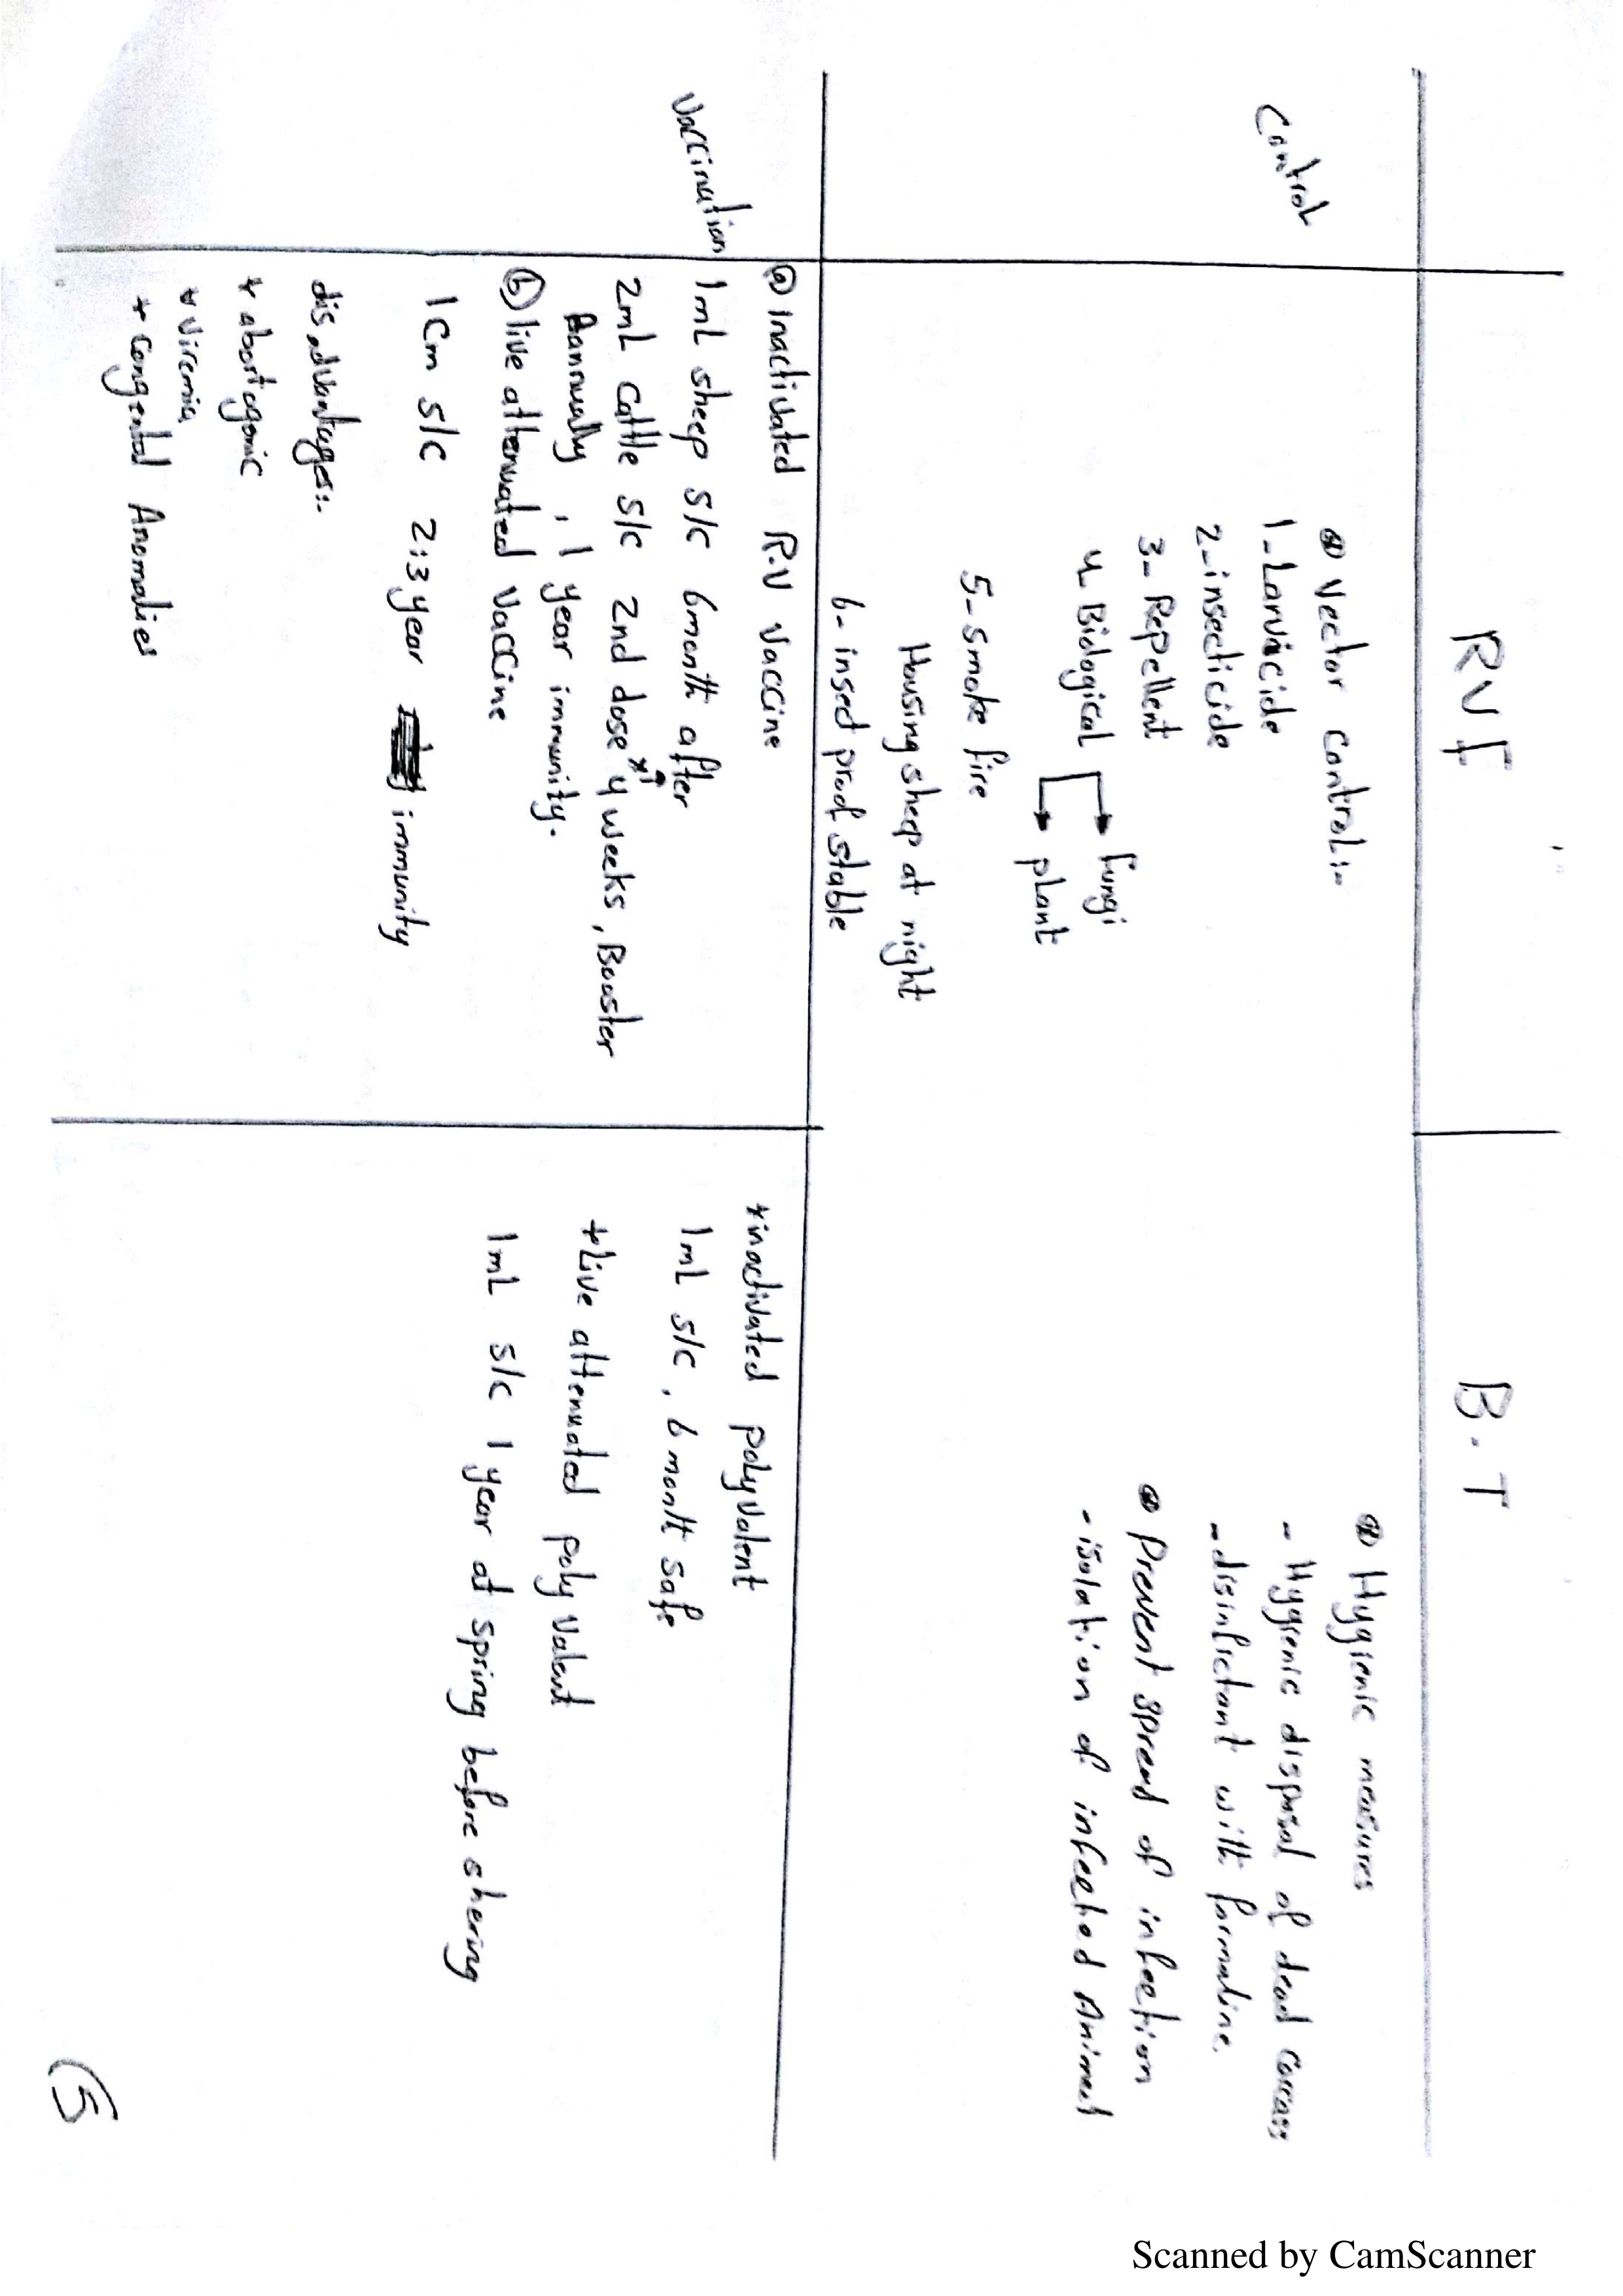 RVF
B.T
Control
⊛ Vector control:-
1-Larvicide
2-insecticide
3- Repellent
4- Biological → fungi
→ plant
5-smoke fire
Housing sheep at night
6- insect proof stable
⊛ Hygienic measures
- Hygienic disposal of dead carcass
-disinfictant with formaline.
⊛ Prevent spread of infection
- isolation of infected Animal
Vaccination
ⓐ inactivated R.V Vaccine
1mL sheep s/c 6month after
2mL cattle s/c 2nd dose 4 weeks, Booster
annually, 1 year immunity.
ⓑ live attenuated Vaccine
1 Cm s/c 2:3 year immunity
disadvantages:-
* abortagonic
* viremia
* Congental Anomalies
*inactivated polyvalent
1mL s/c, 6 month safe
*Live attenuated polyvalent
1mL s/c 1 year at spring before shering
5
Scanned by CamScanner